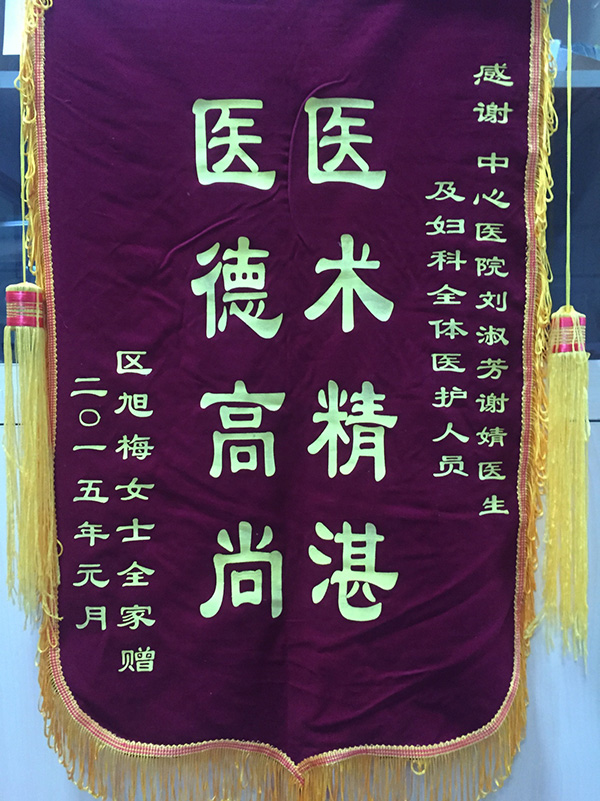 感谢 中心医院刘淑芳谢婧医生
及妇科全体医护人员
医术精湛
医德高尚
区旭梅女士全家 赠
二〇一五年元月